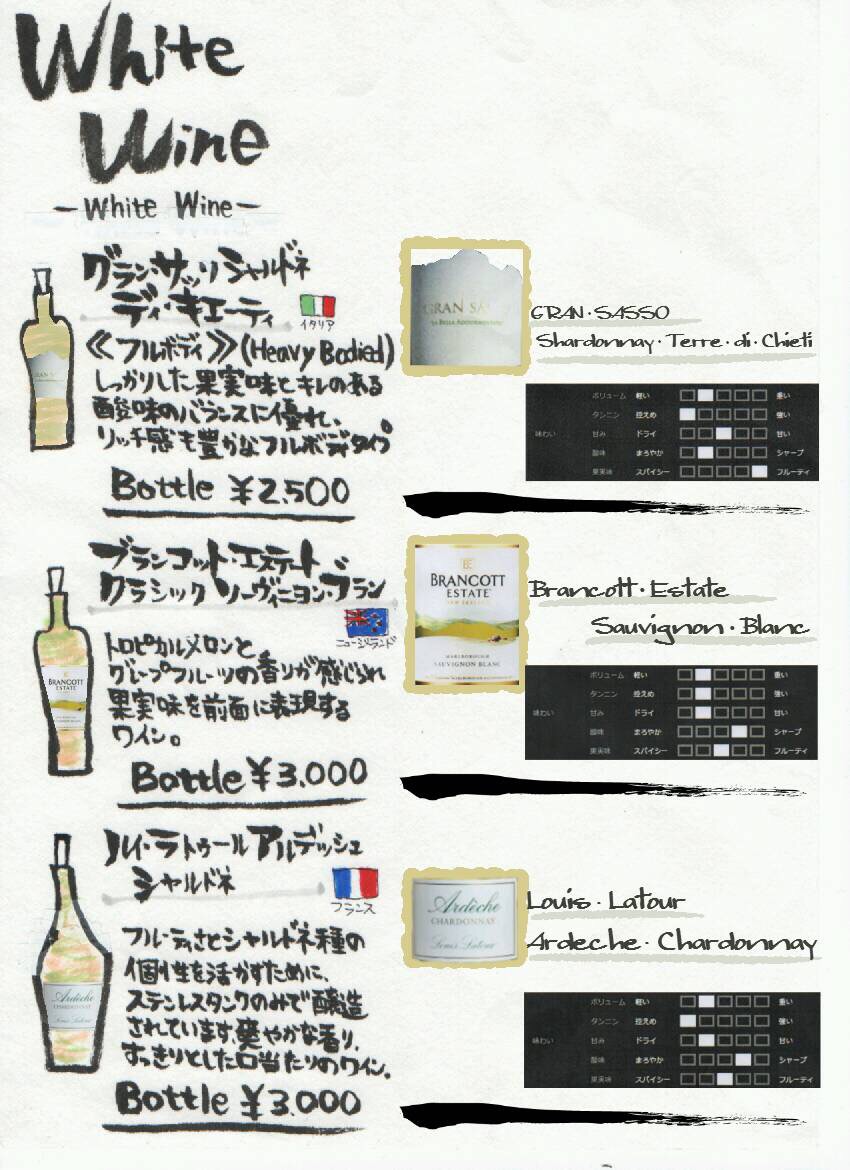 White
Wine
-White Wine-
グラン・サッソ シャルドネ
ディ・キエーティ
イタリア
≪フルボディ≫(Heavy Bodied)
しっかりした果実味とキレのある
酸味のバランスに優れ、
リッチ感も豊かなフルボディタイプ。
Bottle ¥2.500
GRAN SA
GRAN SASSO
LA BELLA ADDORMENTATA
GRAN・SASSO
Shardonnay・Terre・di・Chieti
ボリューム 軽い 重い
タンニン 控えめ 強い
味わい 甘み ドライ 甘い
酸味 まろやか シャープ
果実味 スパイシー フルーティ
ブランコット・エステート
クラシック ソーヴィニヨン・ブラン
ニュージーランド
トロピカルメロンと
グレープフルーツの香りが感じられ
果実味を前面に表現する
ワイン。
Bottle ¥3.000
BRANCOTT
ESTATE
BE
BRANCOTT
ESTATE
NEW ZEALAND
MARLBOROUGH
SAUVIGNON BLANC
Brancott・Estate
Sauvignon・Blanc
ボリューム 軽い 重い
タンニン 控えめ 強い
味わい 甘み ドライ 甘い
酸味 まろやか シャープ
果実味 スパイシー フルーティ
ルイ・ラトゥール アルデッシュ
シャルドネ
フランス
フルーティさとシャルドネ種の
個性を活かすために、
ステンレスタンクのみで醸造
されています。爽やかな香り、
すっきりとした口当たりのワイン。
Bottle ¥3.000
Ardèche
CHARDONNAY
Louis Latour
Ardèche
CHARDONNAY
Louis Latour
Louis・Latour
Ardeche・Chardonnay
ボリューム 軽い 重い
タンニン 控えめ 強い
味わい 甘み ドライ 甘い
酸味 まろやか シャープ
果実味 スパイシー フルーティ